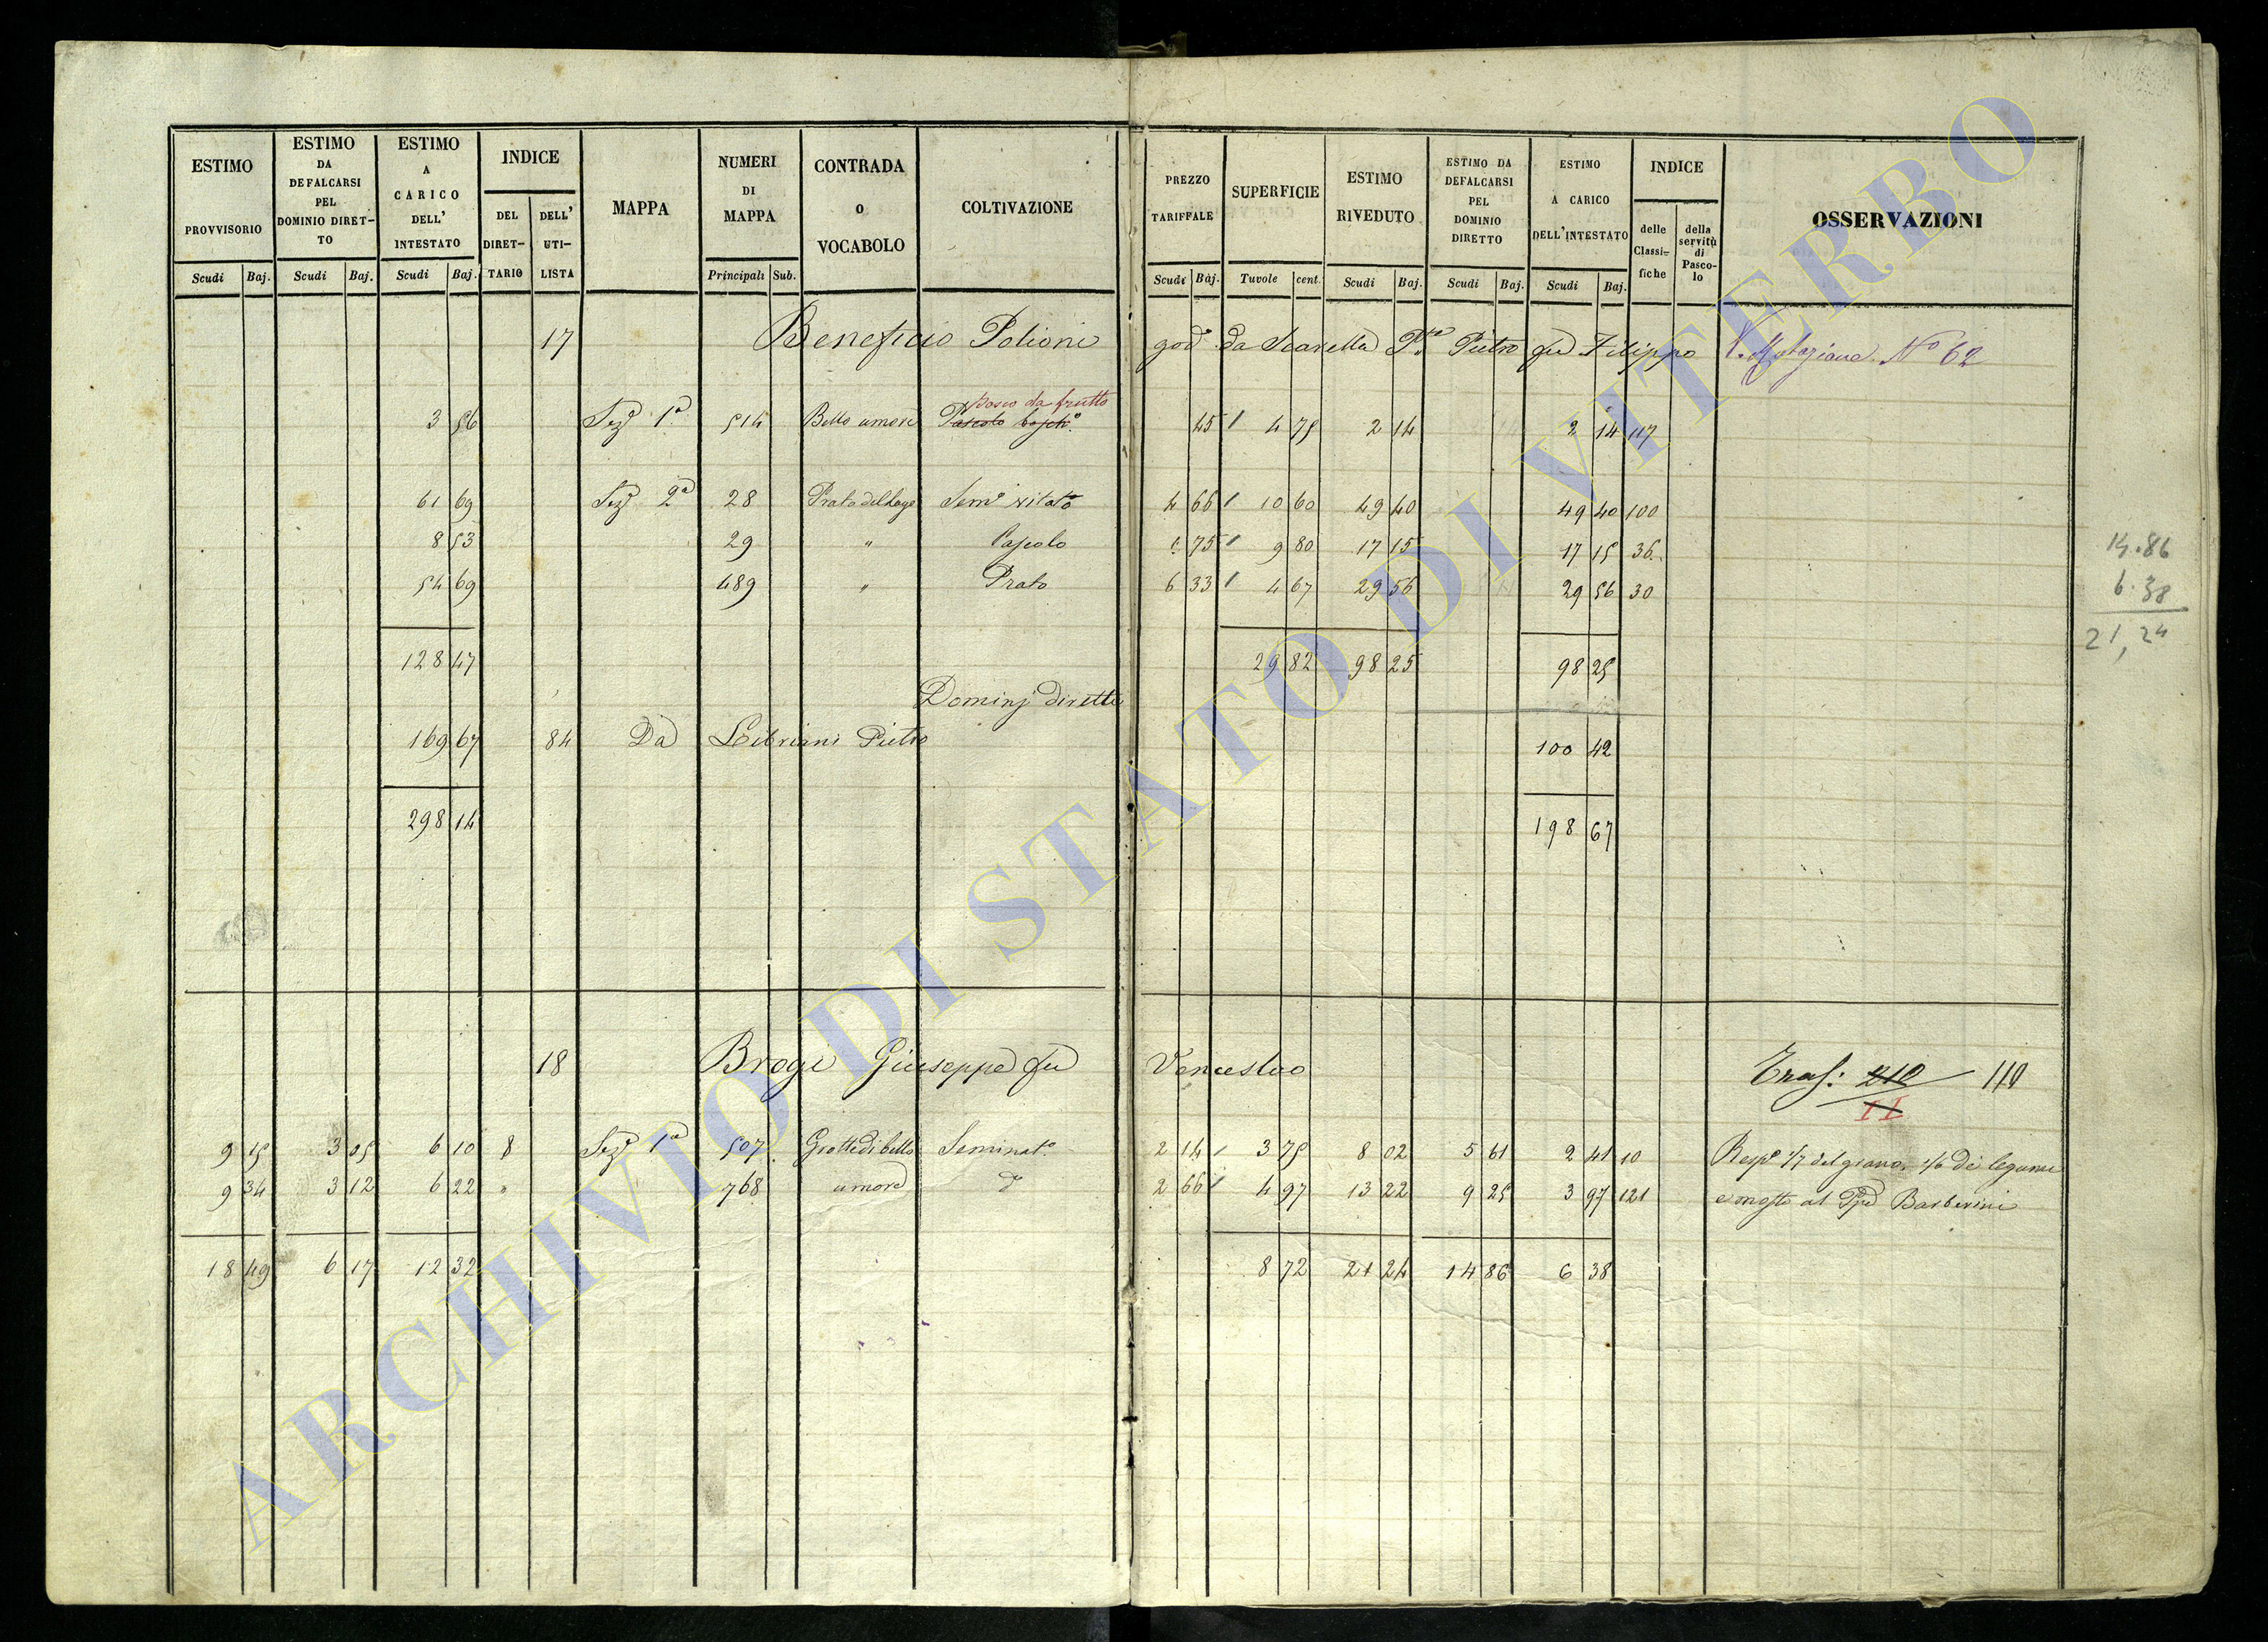 ESTIMO PROVVISORIO
ESTIMO DA DEFALCARSI PEL DOMINIO DIRET-TO
ESTIMO A CARICO DELL' INTESTATO
INDICE
DEL DIRET-TARIO
DELL' UTI-LISTA
MAPPA
NUMERI DI MAPPA
CONTRADA O VOCABOLO
COLTIVAZIONE
PREZZO TARIFFALE
SUPERFICIE
ESTIMO RIVEDUTO
ESTIMO DA DEFALCARSI PEL DOMINIO DIRETTO
ESTIMO A CARICO DELL'INTESTATO
INDICE
delle Classi-fiche
della servitù di Pasco-lo
OSSERVAZIONI
Scudi Baj. Scudi Baj. Scudi Baj. Principali Sub. Scudi Baj. Tavole cent. Scudi Baj. Scudi Baj. Scudi Baj.
17 Beneficio Polioni god. da Scarella Pietro fu Filippo No 62
bosco da frutto
3 56 Seze 1a 514 Bello umore Pascolo bosch.o 45 4 75 2 14 2 14 117
61 69 Seze 2a 28 Sem.o vitato 4 66 10 60 49 40 49 40 100
8 53 29 " Pascolo 1 75 9 80 17 15 17 15 36
54 69 489 " Prato 6 33 4 67 29 56 29 56 30
128 47 29 82 98 25 98 25
Dominj diretti
169 67 84 Da Pietro 100 42
298 14 198 67
14.86
6.38
21,24
18 Brogi Giuseppe fu Venceslao Tras: 212 110
II
9 15 3 05 6 10 8 Seze 1a 507 Grotte di bello Seminat.o 2 14 3 75 8 02 5 61 2 41 10 Rispe 1/7 del grano, 1/6 di legumi
9 34 3 12 6 22 " 768 umore 2 66 4 97 13 22 9 25 3 97 121 e mosto al Barberini
18 49 6 17 12 32 8 72 21 24 14 86 6 38
ARCHIVIO DI STATO DI VITERBO